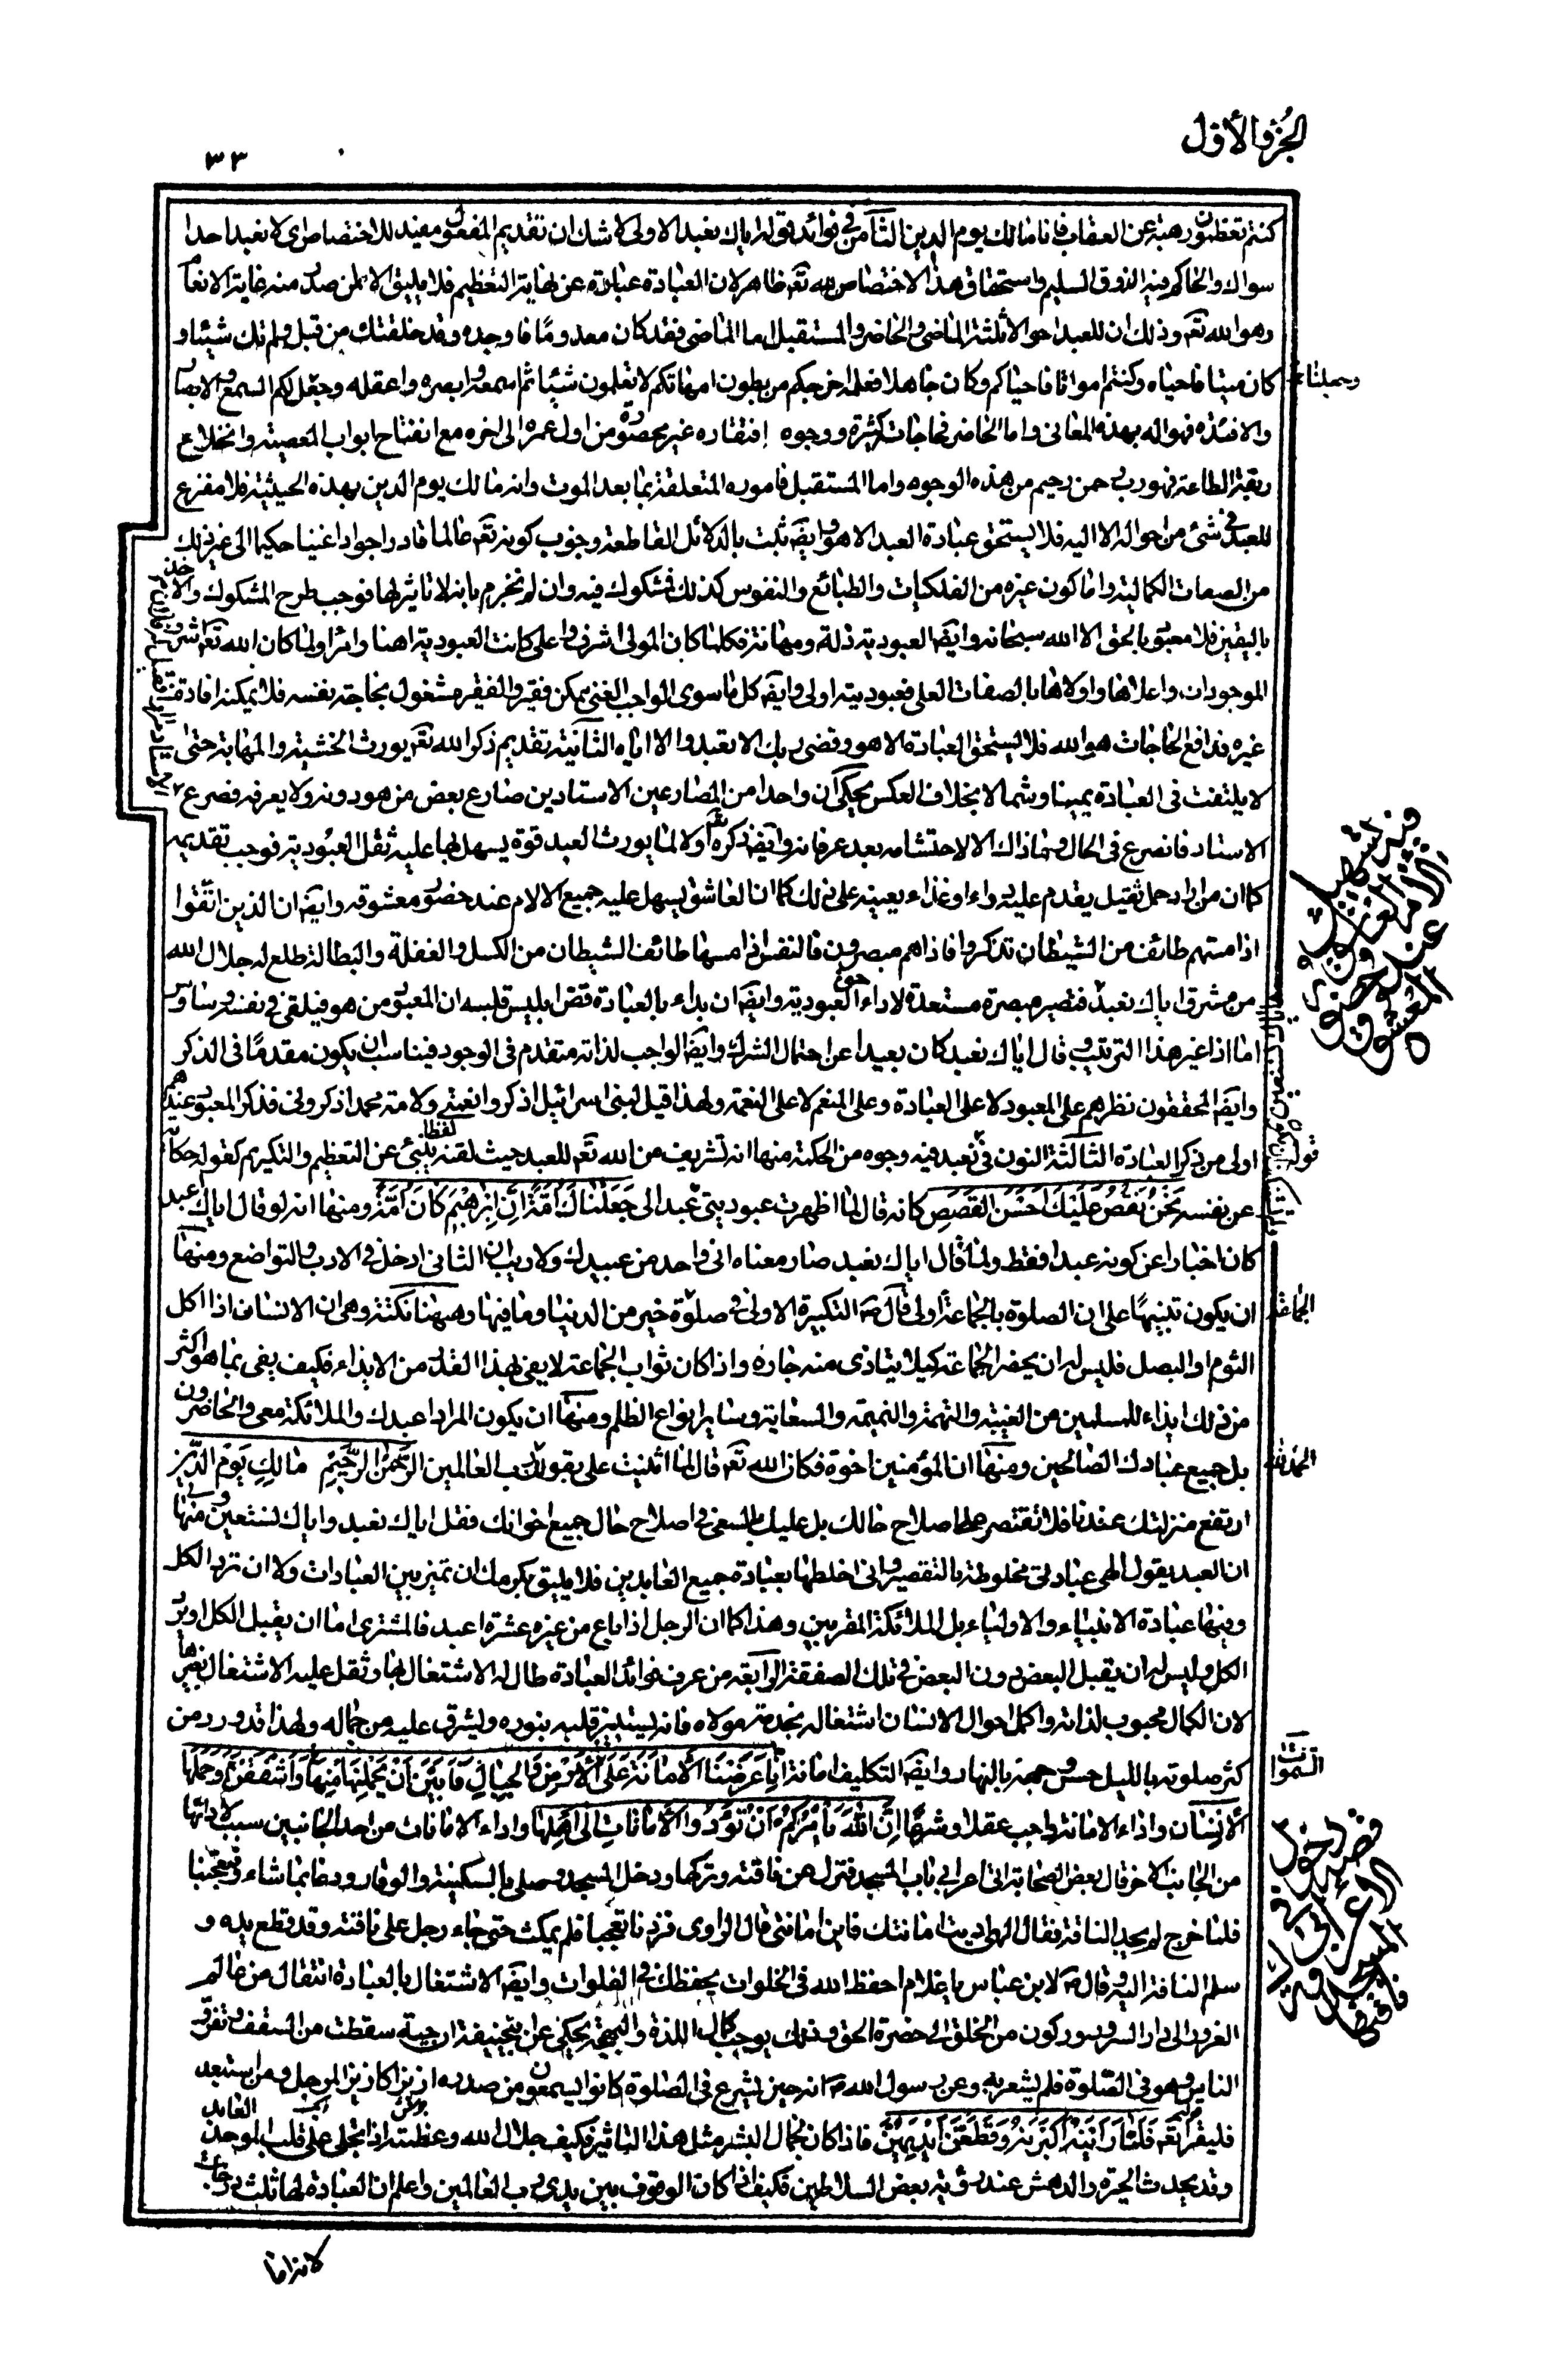 الجزء الأول
٣٣
كنتم تعظمون رهبة عن العقاب فانا مالك يوم الدين الثامن في فوائد قوله اياك نعبد الاولى لا شك ان تقديم المفعول مفيد للاختصاص اى لا نعبد احدا
سواك والحاكم فيه الذوق السليم واستحقاق هذا الاختصاص لله تعۤ ظاهر لان العبادة عبارة عن نهاية التعظيم فلا يليق الا لمن صدر منه غاية الانعام
وهو الله تعۤ وذلك ان للعبد احوالا ثلثة الماضى والحاضر والمستقبل اما الماضى فقد كان معدوما فاوجده وقد خلقتك من قبل ولم تك شيئا و
كان ميتا فاحياه وكنتم امواتا فاحياكم وكان جاهلا فعلمه اخرجكم من بطون امهاتكم لا تعلمون شيئا ثم اسمعه وابصره واعقله وجعل لكم السمع والابصار
والافئدة فهو اله بهذه المعانى واما الحاضر فحاجاته كثيرة ووجوه افتقاره غير محصورة من اول عمره الى اخره مع انفتاح ابواب المعصية وانخلاع
ربقة الطاعة فهو رب رحمن رحيم من هذه الوجوه واما المستقبل فاموره المتعلقة بما بعد الموت وانه مالك يوم الدين بهذه الحيثية فلا مفزع
للعبد فى شئ من احواله الا اليه فلا يستحق عبادة العبد الا هو وايضۤ ثبت بالدلائل القاطعة وجوب كونه تعۤ عالما قادرا جوادا غنيا حكيما الى غير ذلك
من الصفات الكمالية واما كون غيره من الفلكيات والطبائع والنفوس كذلك فمشكوك فيه وان لم نجزم بانه لا تاثير لها فوجب طرح المشكوك والاخذ
باليقين فلا معبود بالحق الا الله سبحانه وايضۤ العبودية ذلة ومهانة فكلما كان المولى اشرف واعلى كانت العبودية اهنا وامرا ولما كان الله تعۤ اشرف
الموجودات واعلاها واولاها بالصفات العلى فعبوديته اولى وايضۤ كل ما سوى الواجب الغنى ممكن فقير والفقير مشغول بحاجة نفسه فلا يمكنه افادة
غيره فدافع الحاجات هو الله فلا يستحق العبادة الا هو وقضى ربك الا تعبدوا الا اياه الثانية تقديم ذكر الله تعۤ يورث الخشية والمهابة حتى
لا يلتفت فى العبادة يمينا وشمالا بخلاف العكس يحكى ان واحدا من المصارعين الاستادين صارع بعض من هو دونه ولا يعرفه فصرع
الاستاد فانصرع فى الحال وما ذاك الا لاحتشامه بعد عرفانه وايضۤ ذكره تعۤ اولا مما يورث العبد قوة يسهل بها عليه ثقل العبودية فوجب تقديمه
كما ان من اراد حمل ثقيل يقدم عليه دواء او غذاء يعينه على ذلك كما ان العاشق يسهل عليه جميع الالام عند حضور معشوقه وايضۤ ان الذين اتقوا
اذا مسهم طائف من الشيطان تذكروا فاذا هم مبصرون فالنفس اذا مسها طائف الشيطان من الكسل والغفلة والبطالة طلع له جلال الله
من مشرق اياك نعبد فتصير مبصرة مستعدة لاداء حق العبودية وايضۤ ان بداء بالعبادة قض ابليس قلبه ان المعبود من هو فيلقى فى نفسه وساوس
اما اذا غير هذا الترتيب وقال اياك نعبد كان بعيدا عن احتمال الشرك وايضۤ الواجب لذاته متقدم فى الوجود فيناسب ان يكون مقدما فى الذكر
وايضۤ المحققون نظرهم على المعبود لا على العبادة وعلى المنعم لا على النعمة ولهذا قيل لبنى اسرائيل اذكروا نعمتى ولامة محمد اذكرونى فذكر المعبود عندهم
اولى من ذكر العبادة الثالثة النون فى نعبد فيه وجوه من الحكمة منها انه تشريف من الله تعۤ للعبد حيث لقنه لفظا ينبئ عن التعظيم والتكريم كقوله حكاية
عن نفسه نَحْنُ نَقُصُّ عَلَيْكَ اَحْسَنَ الْقَصَصِ كانه قال لما اظهرت عبوديتى نعبد الى جَعَلْنَاكَ اُمَّةً اِنَّ اِبْرٰهِيْمَ كَانَ اُمَّةً ومنها انه لو قال اياك عبد
كان اخبارا عن كونه عبدا فقط ولما قال اياك نعبد صار معناه انى واحد من عبيدك ولا ريب ان الثانى ادخل فى الادب والتواضع ومنها
ان يكون تنبيها على ان الصلوة بالجماعة اولى قال صۤ التكبيرة الاولى فى صلوة خير من الدنيا وما فيها وههنا نكتة وهى ان الانسان اذا اكل
الثوم او البصل فليس له ان يحضر الجماعة كيلا يتاذى منه جاره واذا كان ثواب الجماعة لا يفى بهذا القدر من الايذاء فكيف يفى بما هو اكثر
من ذلك ايذاء للمسلمين من الغيبة والتهمة والنميمة والسعاية وسائر انواع الظلم ومنها ان يكون المراد اعبدك والملائكة معى والحاضرون
بل جميع عبادك الصالحين ومنها ان المؤمنين اخوة فكان الله تعۤ قال لما اثنيت على بقولك رب العالمين الرَّحْمٰنِ الرَّحِيْمِ مَالِكِ يَوْمِ الدِّيْنِ
ارتفع منزلتك عندنا فلا تقتصر على اصلاح حالك بل عليك بالسعى فى اصلاح حال جميع اخوانك فقل اياك نعبد واياك نستعين ومنها
ان العبد يقول الهى عبادتى مخلوطة بالتقصير وانى اخلطها بعبادة جميع العابدين فلا يليق بكرمك ان تميز بين العبادات ولا ان ترد الكل
وفيها عبادة الانبياء والاولياء بل الملائكة المقربين وهذا كما ان الرجل اذا باع من غيره عشرة اعبد فالمشترى اما ان يقبل الكل او يرد
الكل وليس له ان يقبل البعض دون البعض فى تلك الصفقة الرابعة من عرف فوائد العبادة طاب له الاشتغال بها وثقل عليه الاشتغال بغيرها
لان الكمال محبوب لذاته واكمل احوال الانسان اشتغاله بخدمة مولاه فانه يستنير قلبه بنوره ويشرق عليه من جماله ولهذا قد ورد من
كثر صلوته بالليل حسن وجهه بالنهار وايضۤ التكليف امانة اِنَّا عَرَضْنَا الْاَمَانَةَ عَلَى الْاَرْضِ وَالْجِبَالِ فَاَبَيْنَ اَنْ يَحْمِلْنَهَا وَاَشْفَقْنَ مِنْهَا وَحَمَلَهَا
الْاِنْسَان واداء الامانة واجب عقلا وشرعا اِنَّ اللّٰهَ يَأْمُرُكُمْ اَنْ تُؤَدُّوا الْاَمَانَاتِ اِلٰى اَهْلِهَا واداء الامانات من احد الجانبين سبب لادائها
من الجانب الاخر قال بعض الصحابة اتى اعرابى باب المسجد فنزل عن ناقته وتركها ودخل المسجد وصلى بالسكينة والوقار ودعا بما شاء فتعجبنا
فلما خرج لم يجد الناقة فقال الهى اديت امانتك فاين امانتى قال الراوى فزدنا تعجبا فلم يمكث حتى جاء رجل على ناقته وقد قطع يده و
سلم الناقة اليه وقال صۤ لابن عباس يا غلام احفظ الله فى الخلوات يحفظك فى الفلوات وايضۤ الاشتغال بالعبادة انتقال من عالم
الغرور الى دار السرور وركون من الخلق الى حضرة الحق وذلك يوجب كمال اللذة والبهجة يحكى عن ابى حنيفة ان حية سقطت من السقف وتفرق
الناس وهو فى الصلوة فلم يشعر بها وعن رسول الله صۤ انه حين يشرع فى الصلوة كانوا يسمعون من صدره ازيزا كازيز المرجل ومن استبعد
فليقرا قوله تعۤ فَلَمَّا رَاَيْنَهٗ اَكْبَرْنَهٗ وَقَطَّعْنَ اَيْدِيَهُنَّ فاذا كان لجمال البشر مثل هذا التاثير فكيف جلال الله وعظمته اذا تجلى على قلب الموحد العابد
وقد يحدث الحيرة والدهش عند رؤية بعض السلاطين فكيف اذا كان الوقوف بين يدى رب العالمين واعلم ان العبادة لها ثلث درجات
الجماعة
الحمد لله
السموات
لانه اما